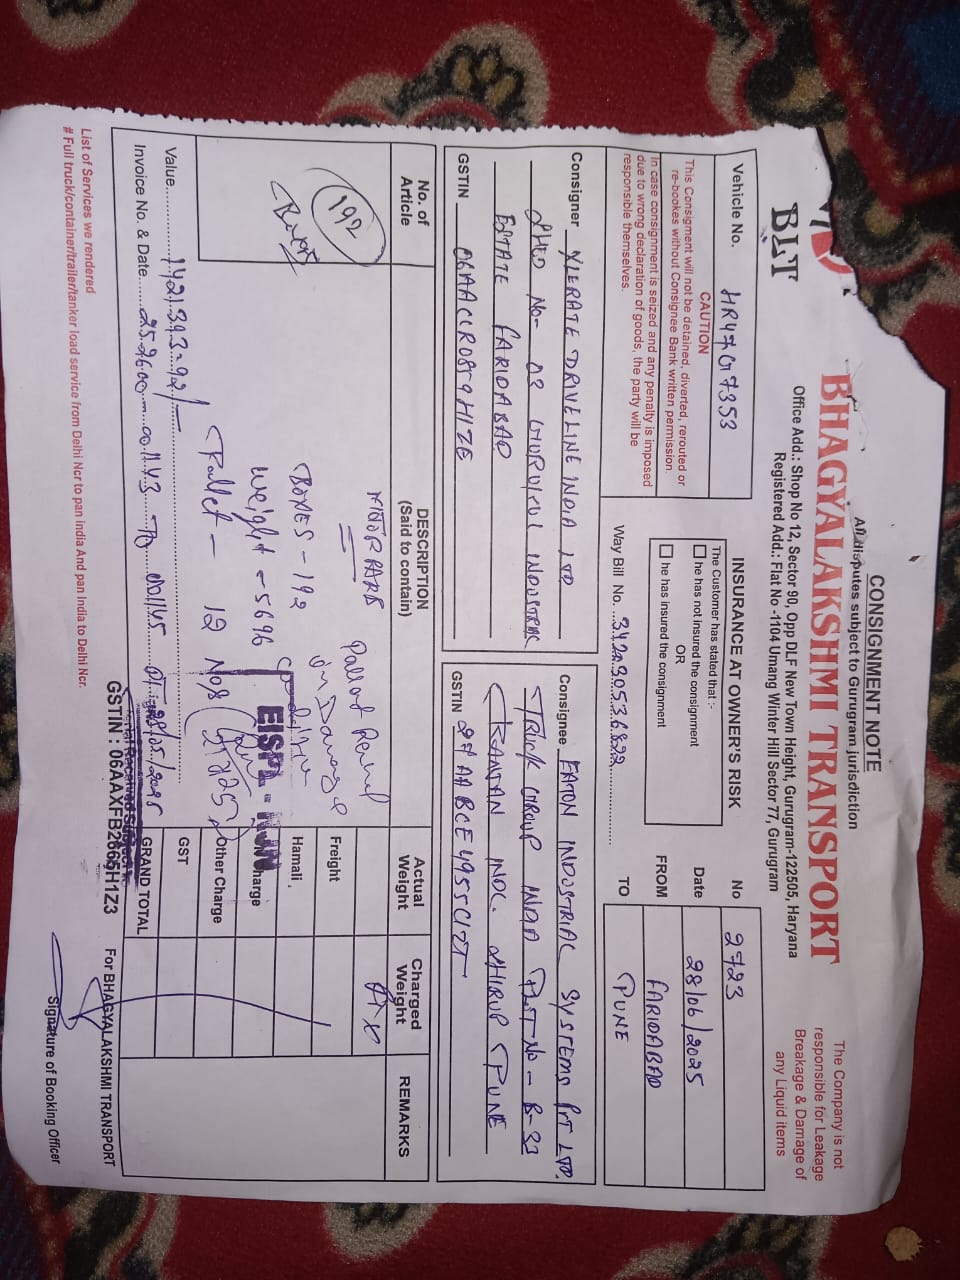 CONSIGNMENT NOTE
All disputes subject to Gurugram jurisdiction
BLT
BHAGYALAKSHMI TRANSPORT
Office Add.: Shop No 12, Sector 90, Opp DLF New Town Height, Gurugram-122505, Haryana
Registered Add.: Flat No -1104 Umang Winter Hill Sector 77, Gurugram
The Company is not
responsible for Leakage
Breakage & Damage of
any Liquid items
Vehicle No. HR47G7353
CAUTION
This Consigment will not be detained, diverted, rerouted or
re-bookes without Consignee Bank written permission.
In case consignment is seized and any penalty is imposed
due to wrong declaration of goods, the party will be
responsible themselves.
INSURANCE AT OWNER'S RISK
The Customer has stated that :-
he has not Insured the consignment
OR
he has insured the consignment
Way Bill No. 342030536822
No 2723
Date 28/06/2025
FROM FARIDABAD
TO PUNE
Consigner XLERATE DRIVELINE INDIA LTD
SHED No- 03 INDUSTRIAL
ESTATE FARIDABAD
GSTIN
Consignee EATON INDUSTRIAL SYSTEMS PVT LTD.
GROUP INDIA PLOT-No - B-33
IND. SHIRUR PUNE
GSTIN 27AABCE4955C1ZT
No. of
Article
DESCRIPTION
(Said to contain)
Actual
Weight
Charged
Weight
REMARKS
192
BOXES - 192
weight - 5696
Pallet - 12 Nos
Freight
Hamali
Charge
Other Charge
GST
GRAND TOTAL
Value
Invoice No. & Date
EISPL - RJN
GSTIN : 06AAXFB2665H1Z3
For BHAGYALAKSHMI TRANSPORT
Signature of Booking Officer
List of Services we rendered
# Full truck/container/trailer/tanker load service from Delhi Ncr to pan india And pan India to Delhi Ncr.